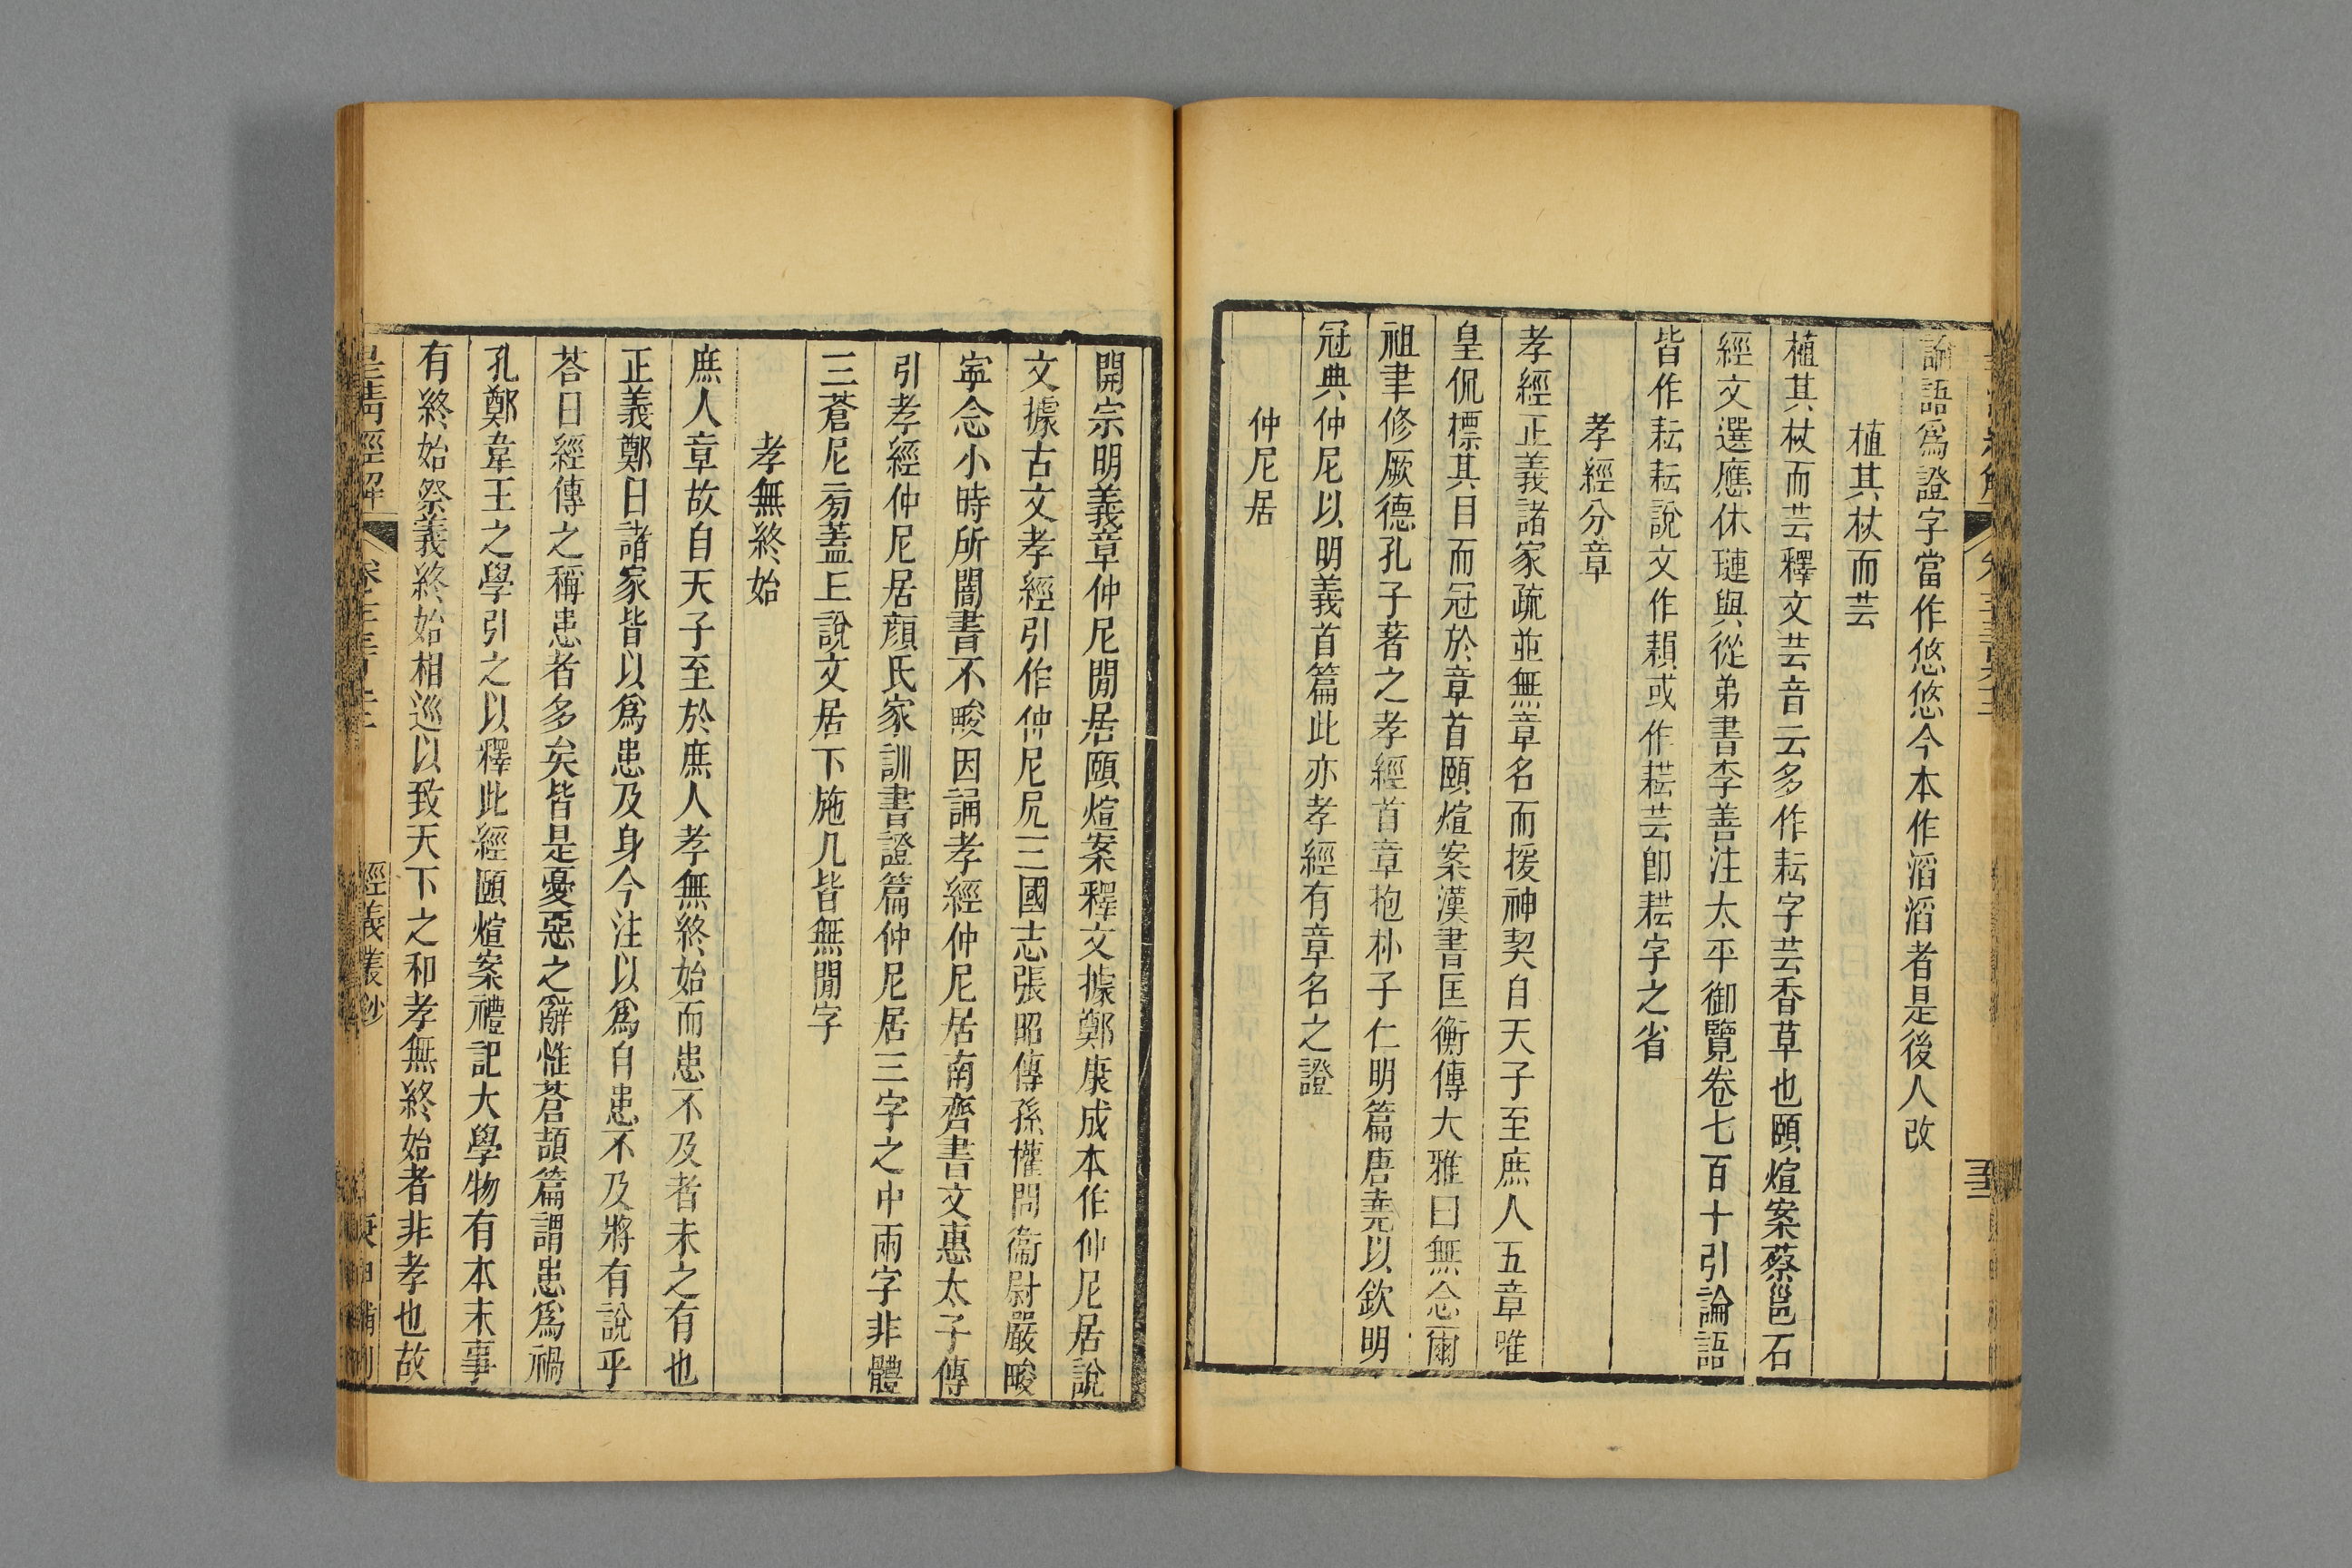 論語爲證字當作悠悠今本作滔滔者是後人改
植其杖而芸
植其杖而芸釋文芸音云多作耘字芸香草也頤煊案蔡邕石
經文選應休璉與從弟書李善注太平御覽卷七百十引論語
皆作耘耘說文作䅼或作𦔐芸卽𦔐字之省
孝經分章
孝經正義諸家疏並無章名而援神契自天子至庶人五章唯
皇侃標其目而冠於章首頤煊案漢書匡衡傳大雅曰無念爾
祖聿修厥德孔子著之孝經首章抱朴子仁明篇唐堯以欽明
冠典仲尼以明義首篇此亦孝經有章名之證
仲尼居
開宗明義章仲尼閒居頤煊案釋文據鄭康成本作仲尼居說
文據古文孝經引作仲尼凥三國志張昭傳孫權問衞尉嚴畯
寧念小時所闇書不畯因誦孝經仲尼居南齊書文惠太子傳
引孝經仲尼居顏氏家訓書證篇仲尼居三字之中兩字非體
三蒼尼㫄蓋上說文居下施几皆無閒字
孝無終始
庶人章故自天子至於庶人孝無終始而患不及者未之有也
正義鄭曰諸家皆以爲患及身今注以爲自患不及將有說乎
荅曰經傳之稱患者多矣皆是憂惡之辭惟蒼頡篇謂患爲禍
孔鄭韋王之學引之以釋此經頤煊案禮記大學物有本末事
有終始祭義終始相巡以致天下之和孝無終始者非孝也故
皇清經解
經義叢鈔
庚申補刊